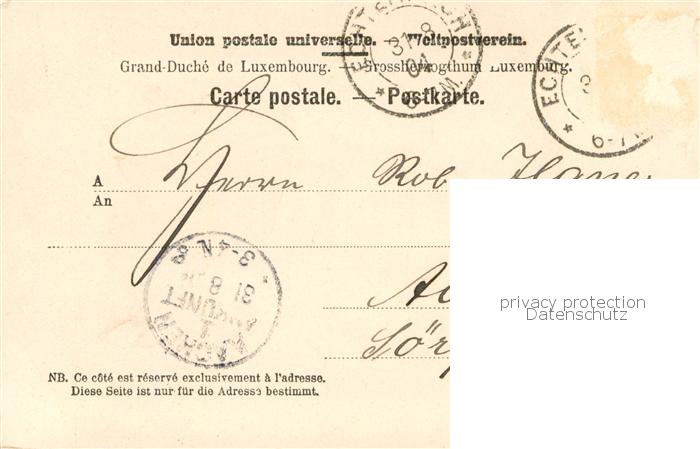 Union postale universelle. — Weltpostverein.
Grand-Duché de Luxembourg. — Grossherzogthum Luxemburg.
Carte postale. — Postkarte.
ECHTERNACH
31 8
04
M.
ECHTE
6-7
A
An
Herrn Rob
3-4N
31 8
ANKUNFT
1
AACHEN
NB. Ce côté est réservé exclusivement à l'adresse.
Diese Seite ist nur für die Adresse bestimmt.
privacy protection
Datenschutz